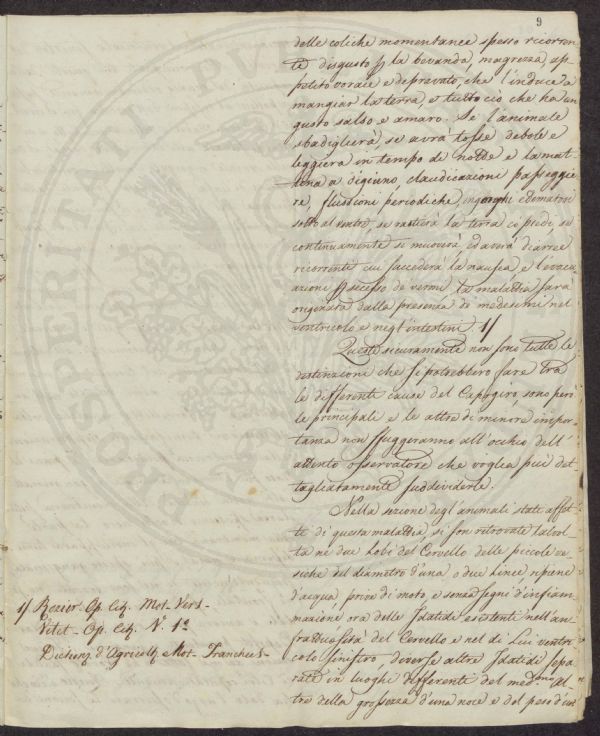 9
delle coliche momentanee spesso ricorren
te disgusto p la bevanda, magrezza, ap
petito vorace e depravato, che l'induce a
mangiar la terra, e tutto ciò che ha un
gusto salso e amaro. Se l'animale
sbadiglierà, se avrà tosse debole e
leggiera in tempo di notte e la mat
tina a digiuno, claudicazioni passeggie
re, flussioni periodiche, ingorghi edematosi
sotto al ventre, se rastierà la terra co piedi, se
continuamente si muoverà, ed avrà diarree
ricorrenti cui succederà la nausea e l'evacu
azione p secesso de vermi la malattia sarà
originata dalla presenza di medesimi nel
ventricolo e negl'intestini. 1/
Queste sicuramente non sono tutte le
destinzioni che si potrebbero fare tra
le differenti cause del Capogiro, sono però
le principali e le altre di minore impor
tanza non sfuggeranno all'occhio dell'
attento osservatore che voglia più det
tagliatamente suddividerle.
Nella sezione degl'animali stati affet
ti di questa malattia, si son ritrovate talvol
ta ne due Lobi del Cervello delle piccole ve
siche del diametro d'una, o due linee, ripiene
d'acqua, prive di moto, e senza segni d'infiam
mazione, ora delle Idatidi esistenti nell'an
frattuosità del Cervello e nel di lui ventri
colo sinistro, diverse altre Idatidi sepa
rate in luoghi differenti del medmo. Al
tre della grossezza d'una noce e del peso d'un
1/ Rozier. Op. Cit. Mot. Vers-
Vitet - Op. Cit. V. 1º
Dictionz. d'Agricoltz. Mot-